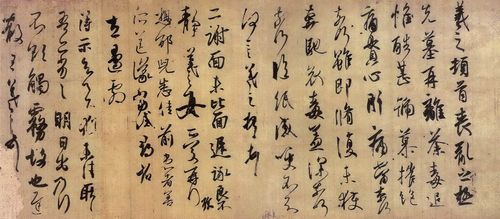 羲之頓首喪亂之極
先墓再離荼毒追
惟酷甚號慕摧絕
痛貫心肝痛當奈何
奈何雖即脩復未獲
奔馳哀毒益深奈何
奈何臨紙感哽不知
何言羲之頓首頓首
二謝面未比面遲詠良不
靜羲女愛再拜
想邵兒悉佳前患者善
左邊劇
得示知足下猶未佳耿耿
吾亦劣劣明日出乃行
不欲觸霧故也遲
散王羲之頓首